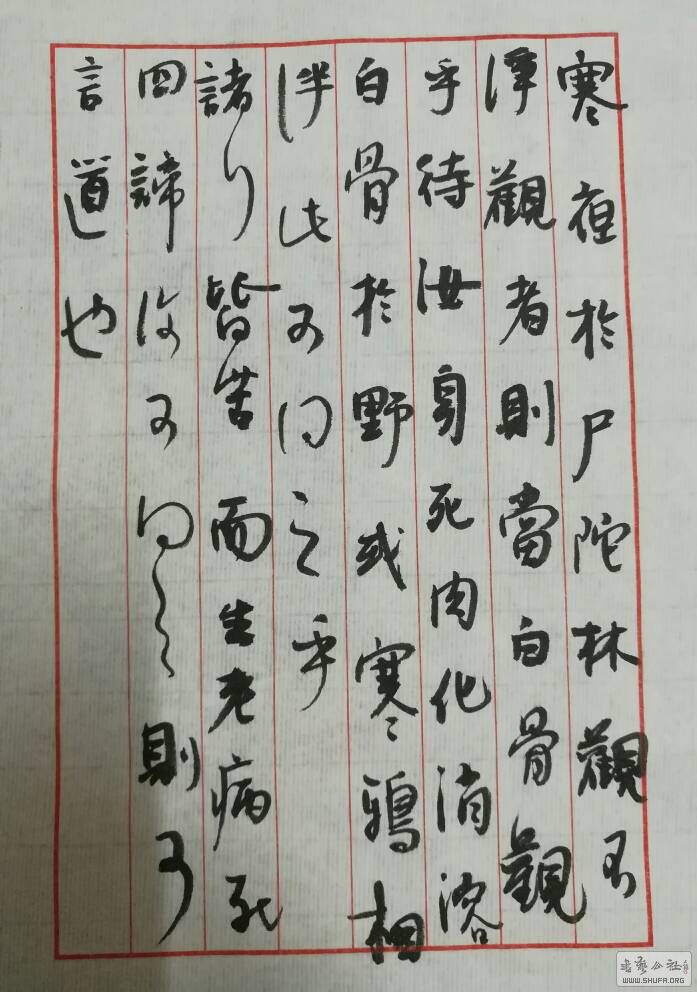 寒夜於尸陀林觀不
淨觀者則當白骨觀
乎待汝身死肉化消溶
白骨於野或寒鴉相
伴此可得之乎
諸行皆苦而生老病死
四諦復可得之則可
言道也
WWW.SHUFA.ORG